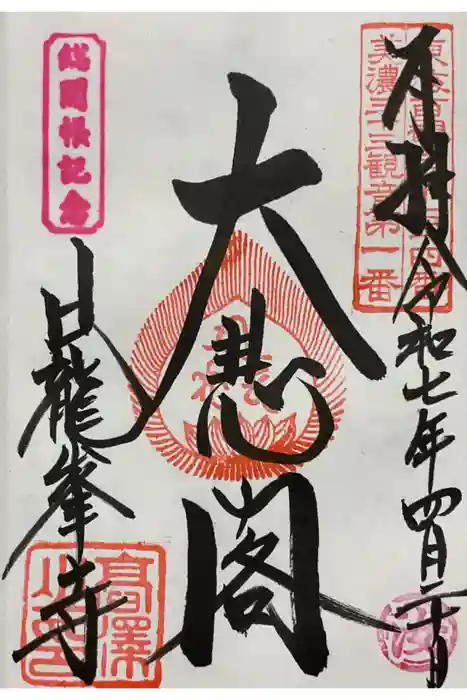 奉拝
令和七年四月二十日
美濃三十三観音第一番
大悲閣
日龍峯寺
総開帳記念
高澤